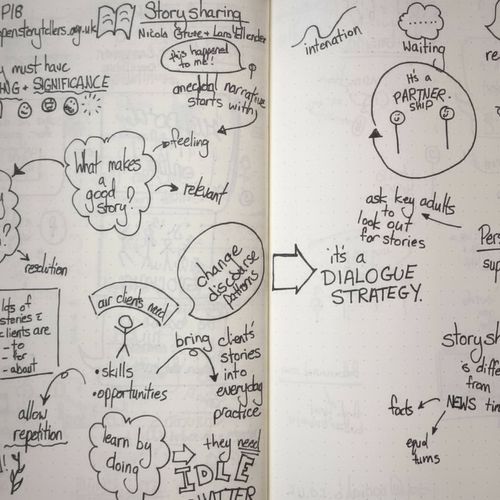 P18
openstorytellers.org.uk
Story sharing
Nicola Grove + Lans Ellender
"this happened
to me!"
must have
SIGNIFICANCE
anecdotal narrative
starts with
feeling
What makes
a
good
story?
relevant
resolution
lots of
stories
clients are
- to
- for
- about
our clients need
• skills
• opportunities
change
discourse
patterns
bring client's
stories
into
everyday
practice
allow
repetition
learn by
doing
they need
IDLE
intonation
Waiting
It's a
PARTNER
SHIP
ask key adults
to
look out
for stories
it's a
DIALOGUE
STRATEGY.
story
is
from
NEWS
facts
equal
turns